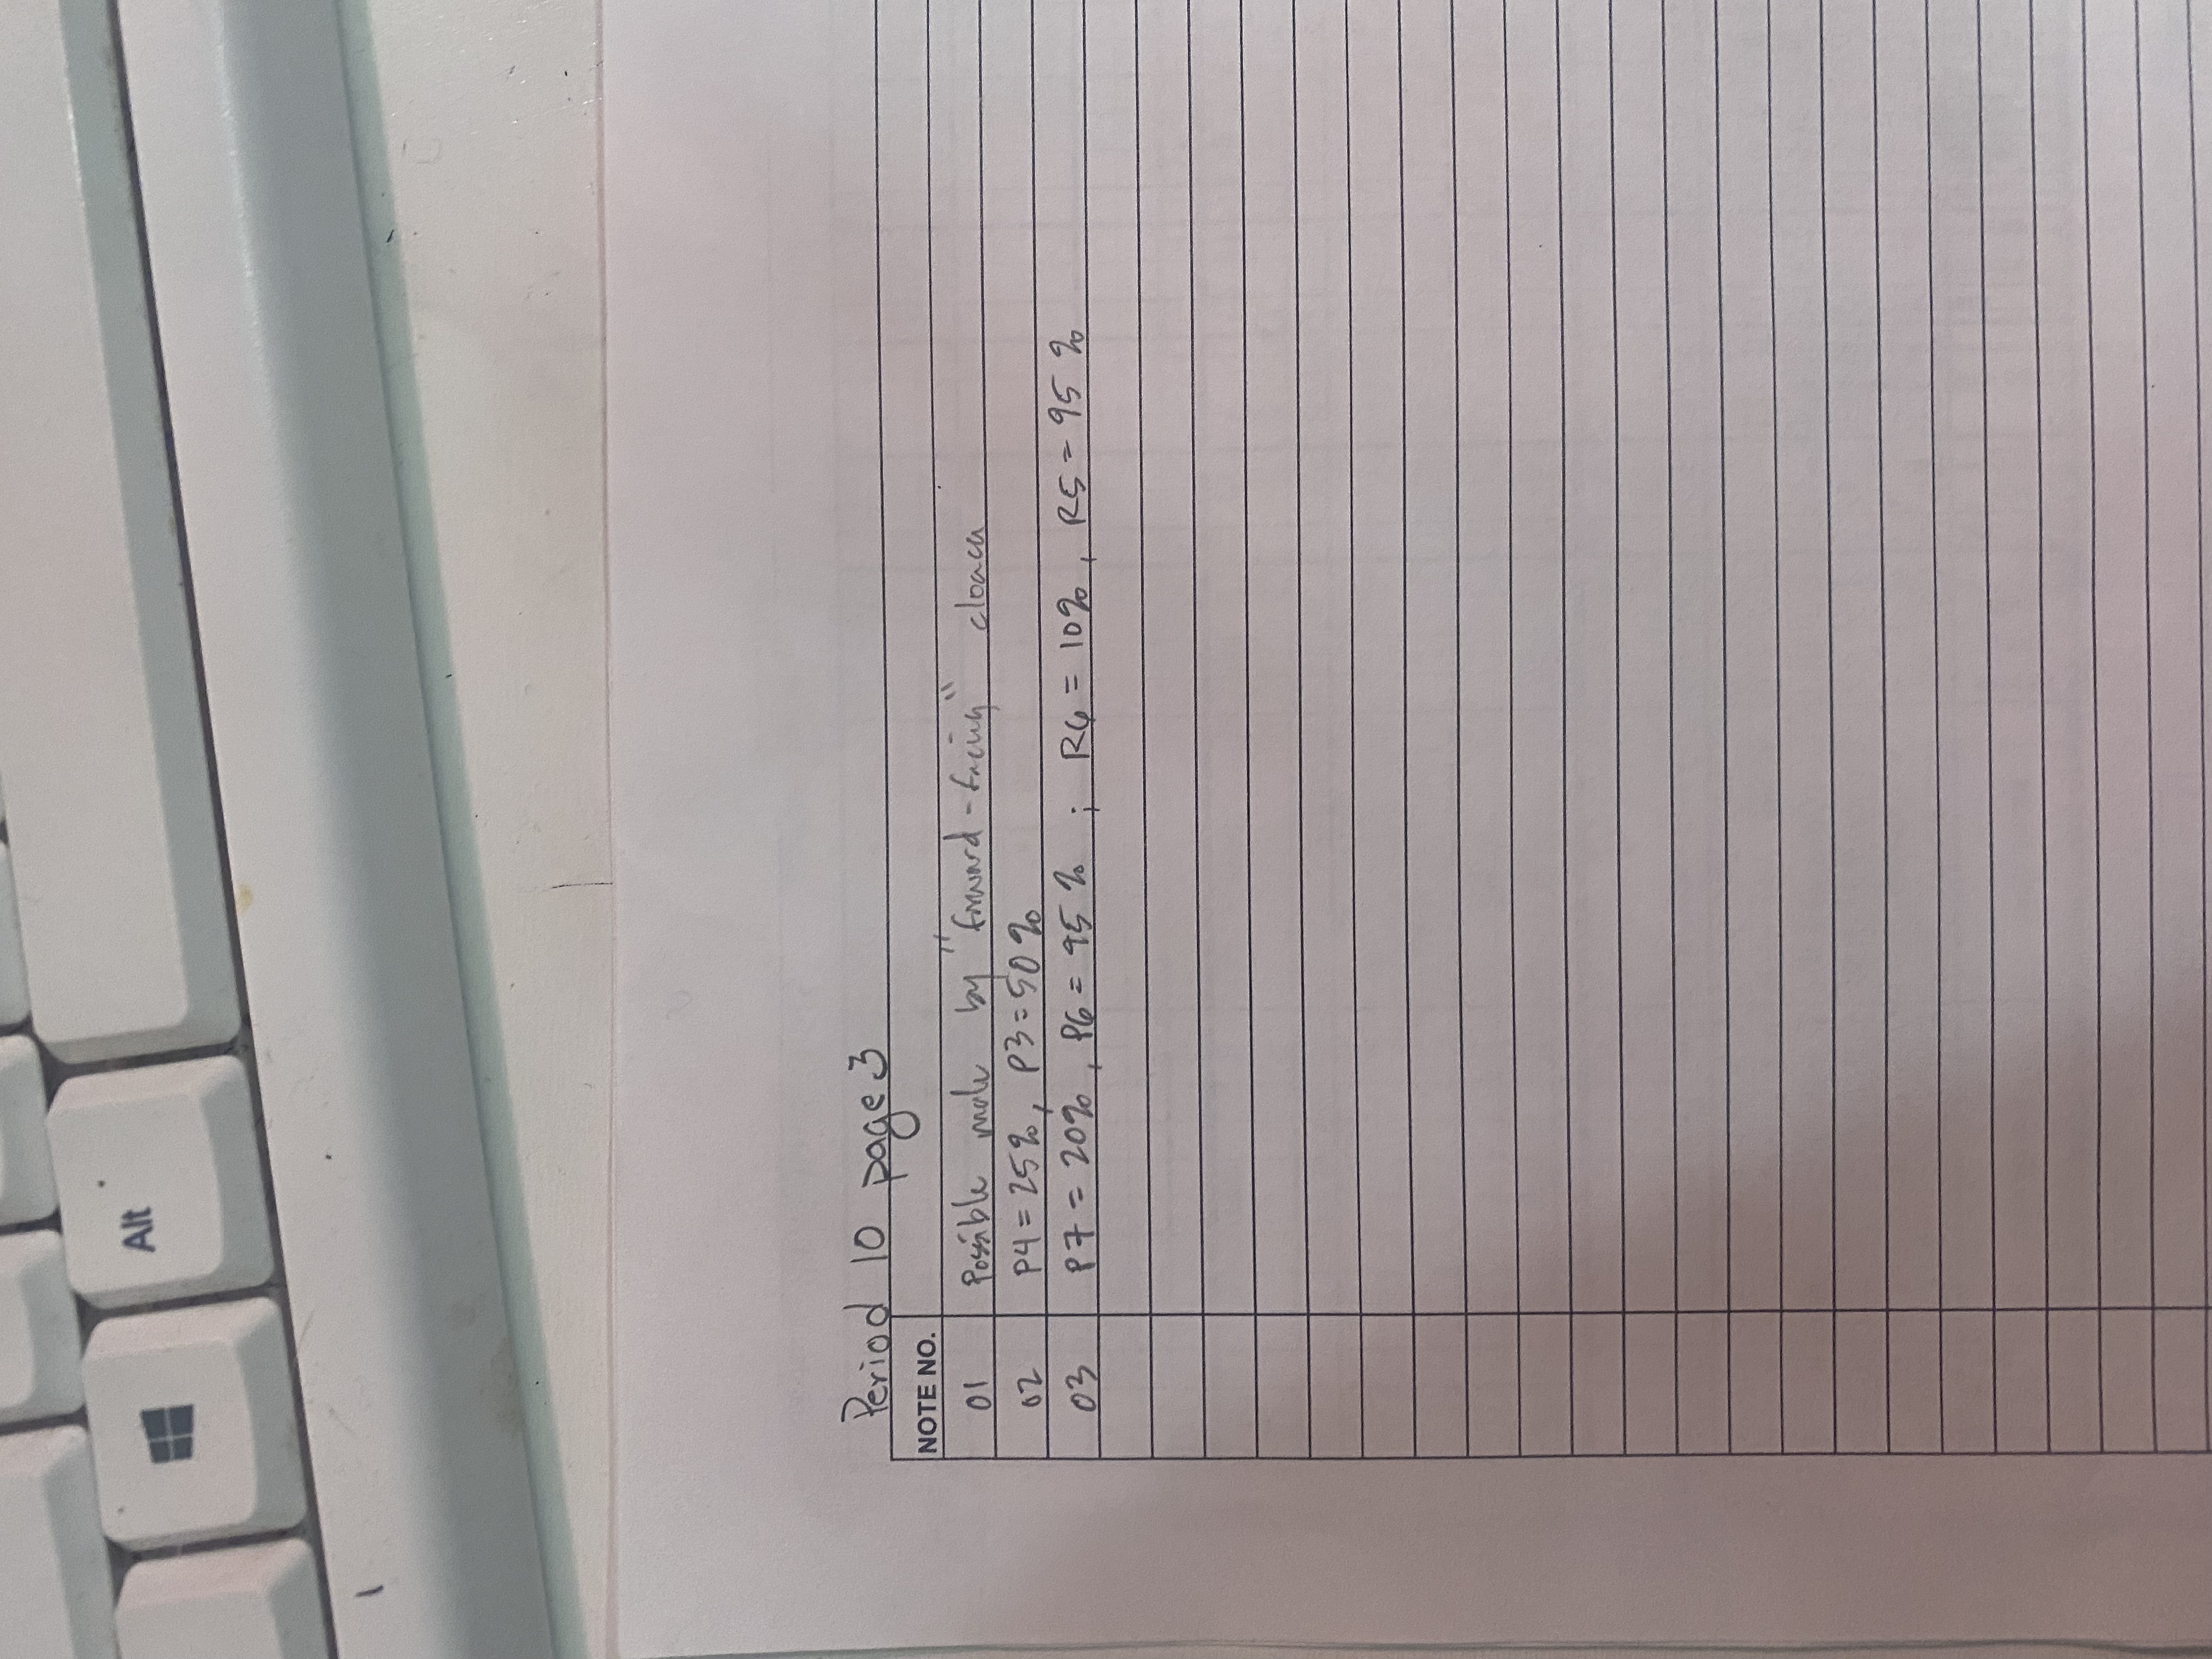 Alt
Period 10 page 3
NOTE NO.
01 Possible male by "forward-facing" cloaca
02 P4 = 25%, P3 = 50%
03 P7 = 20%, P6 = 95% ; R6 = 10%, R5 = 95%